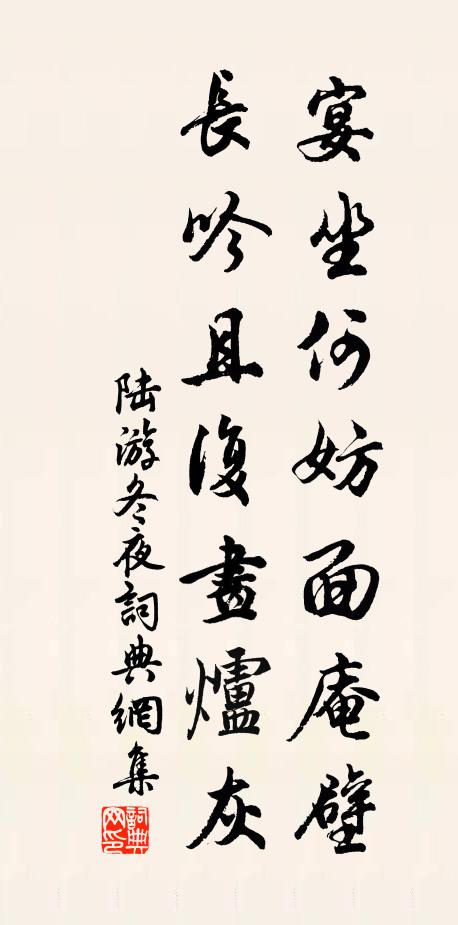 宴坐何妨面庵壁
長吟且復畫爐灰
陆游冬夜詞典網集
詞典网印